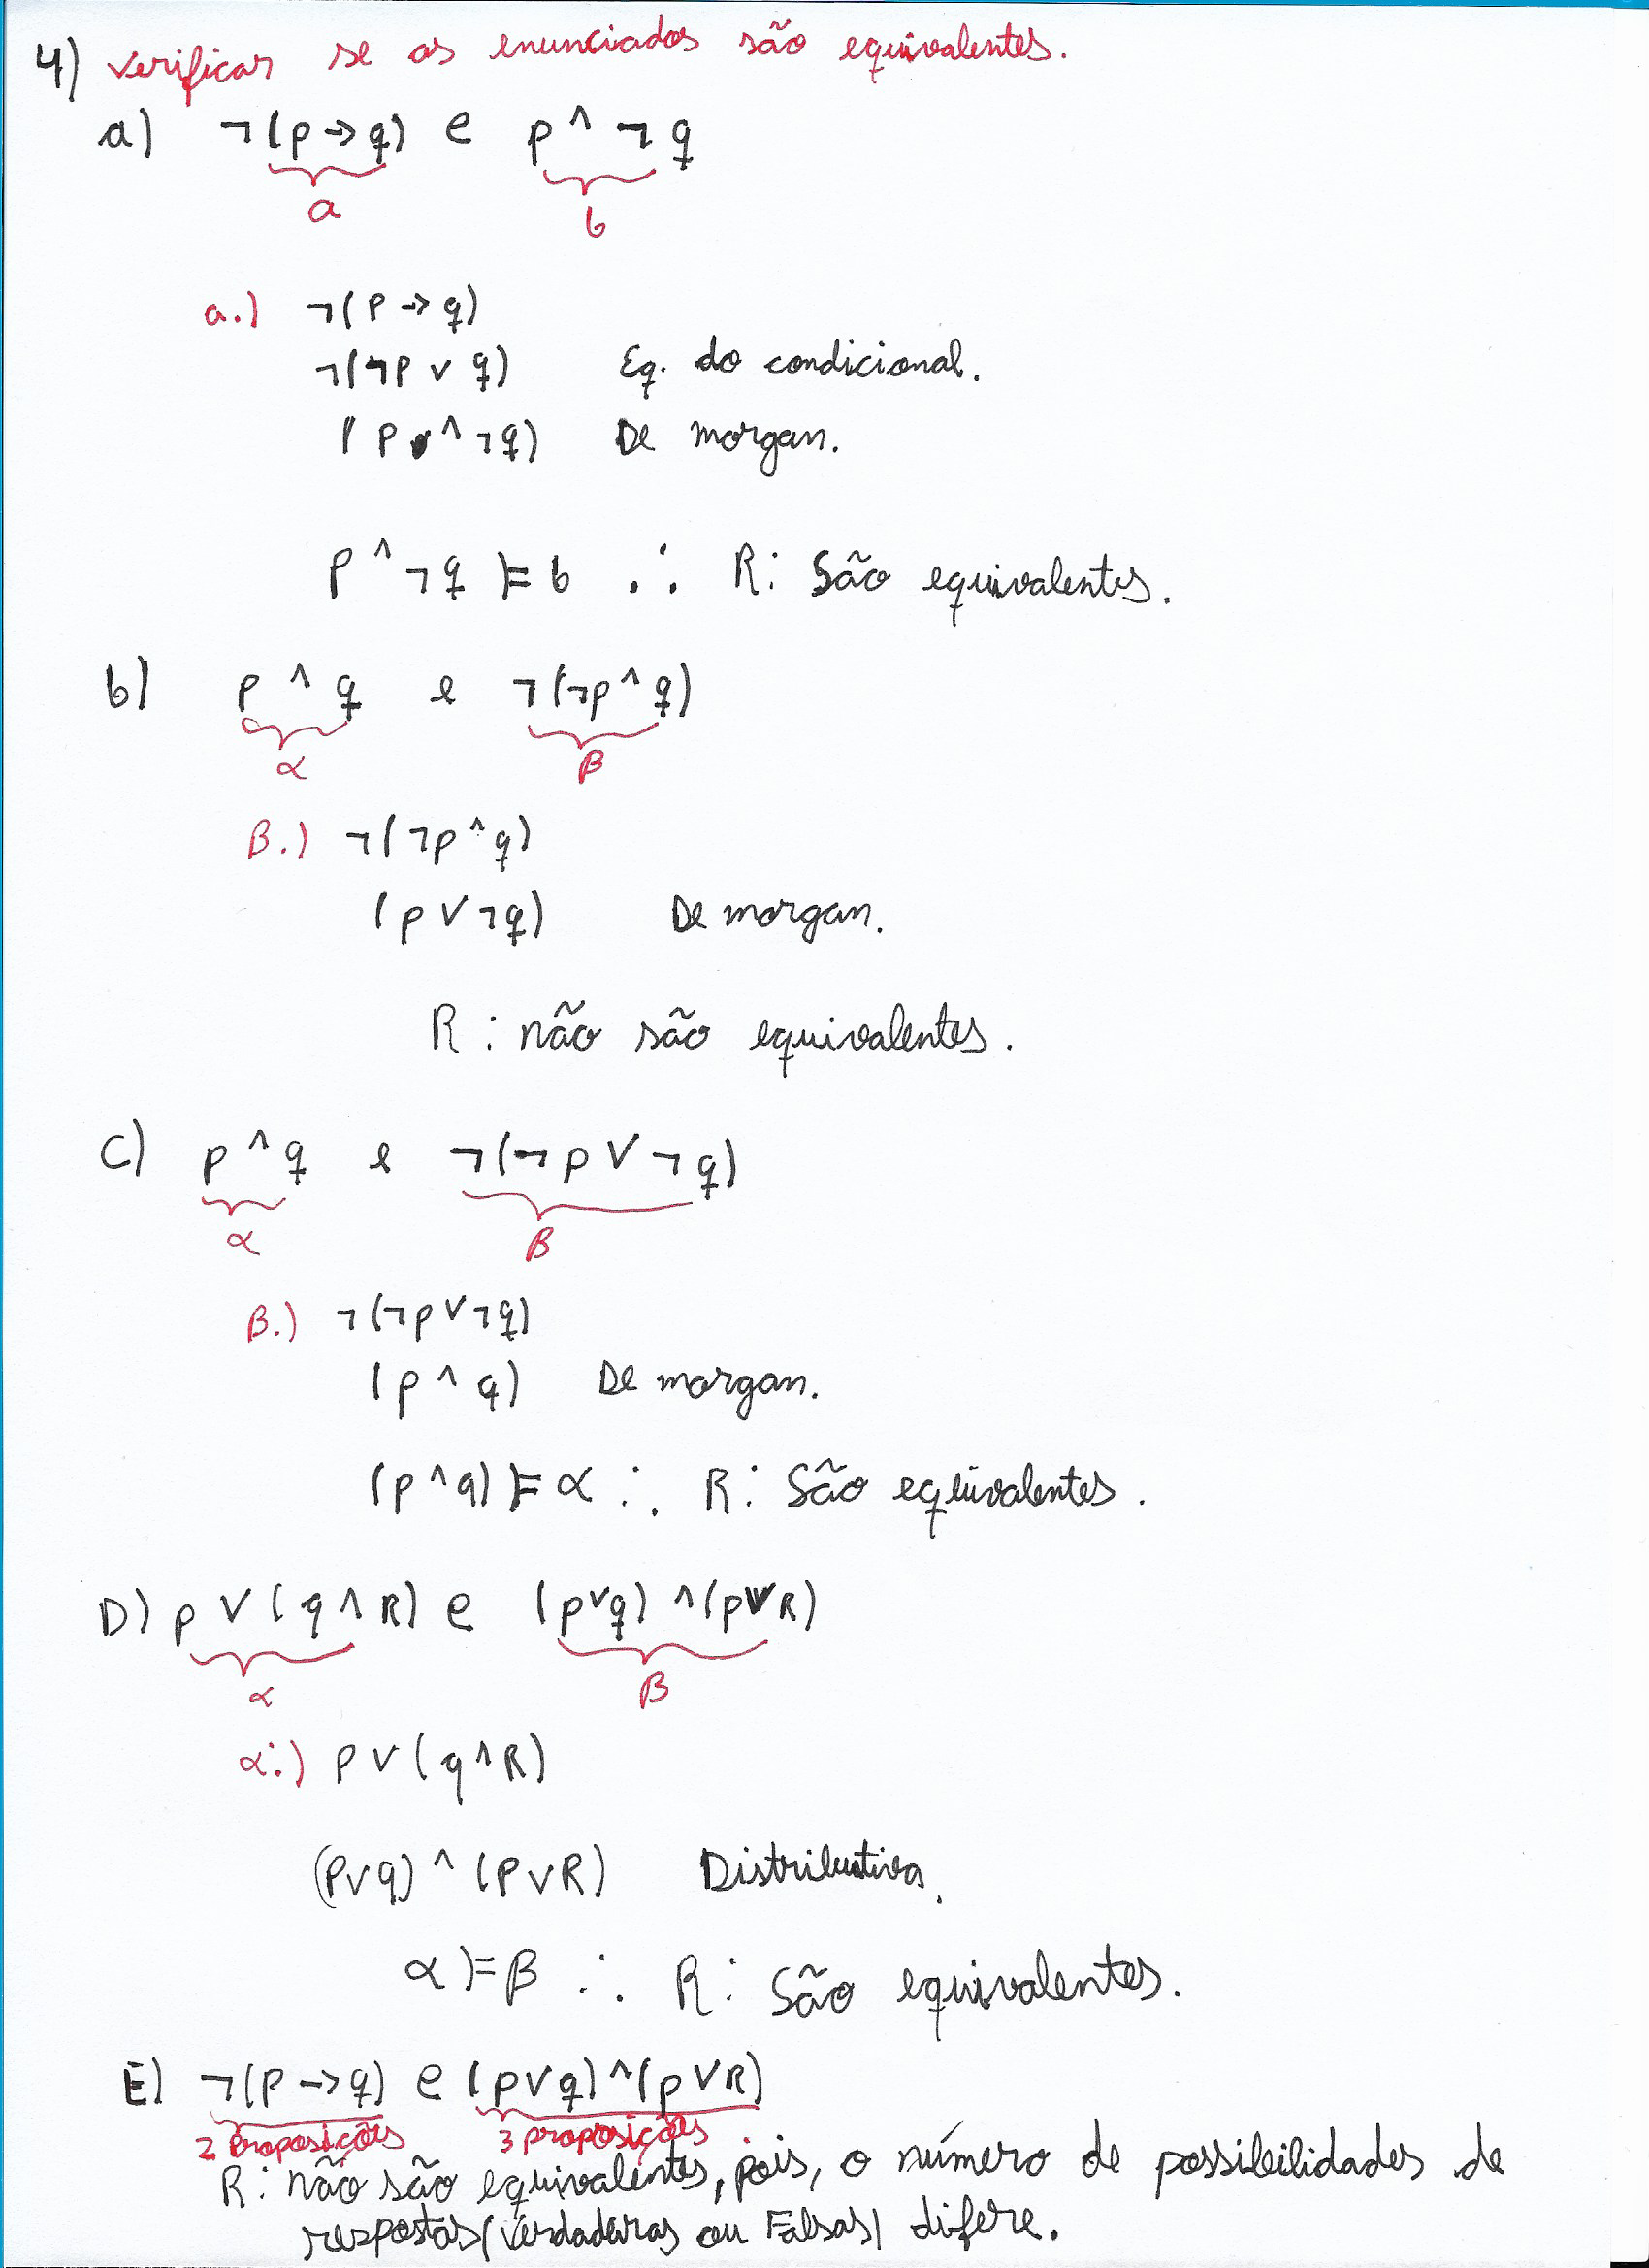 4) Verificar se os enunciados são equivalentes.
a) ¬(p → q) e p ^ ¬q
a b
a.) ¬(p → q)
¬(¬p v q) Eq. do condicional.
(p ^ ¬q) De morgan.
p ^ ¬q ⊨ b ∴ R: São equivalentes.
b) p ^ q e ¬(¬p ^ q)
α β
β.) ¬(¬p ^ q)
(p v ¬q) De morgan.
R: não são equivalentes.
C) p ^ q e ¬(¬p v ¬q)
α β
β.) ¬(¬p v ¬q)
(p ^ q) De morgan.
(p ^ q) ⊨ α ∴ R: São equivalentes.
D) p v (q ^ R) e (p v q) ^ (p v R)
α β
α.) p v (q ^ R)
(p v q) ^ (p v R) Distributiva.
α ⊨ β ∴ R: São equivalentes.
E) ¬(p → q) e (p v q) ^ (p v R)
2 proposições 3 proposições
R: não são equivalentes, pois, o número de possibilidades de
respostas (Verdadeiras ou Falsas) difere.